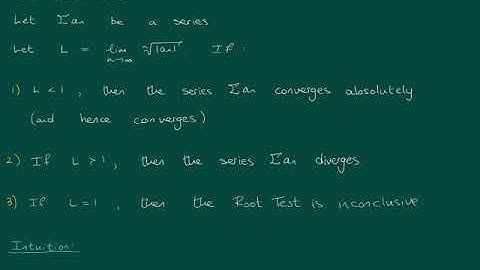 Let Σan be a series
Let L = lim n→∞ ⁿ√|an|. If:
1) L < 1, then the series Σan converges absolutely
(and hence converges)
2) If L > 1, then the series Σan diverges
3) If L = 1, then the Root Test is inconclusive
Intuition: